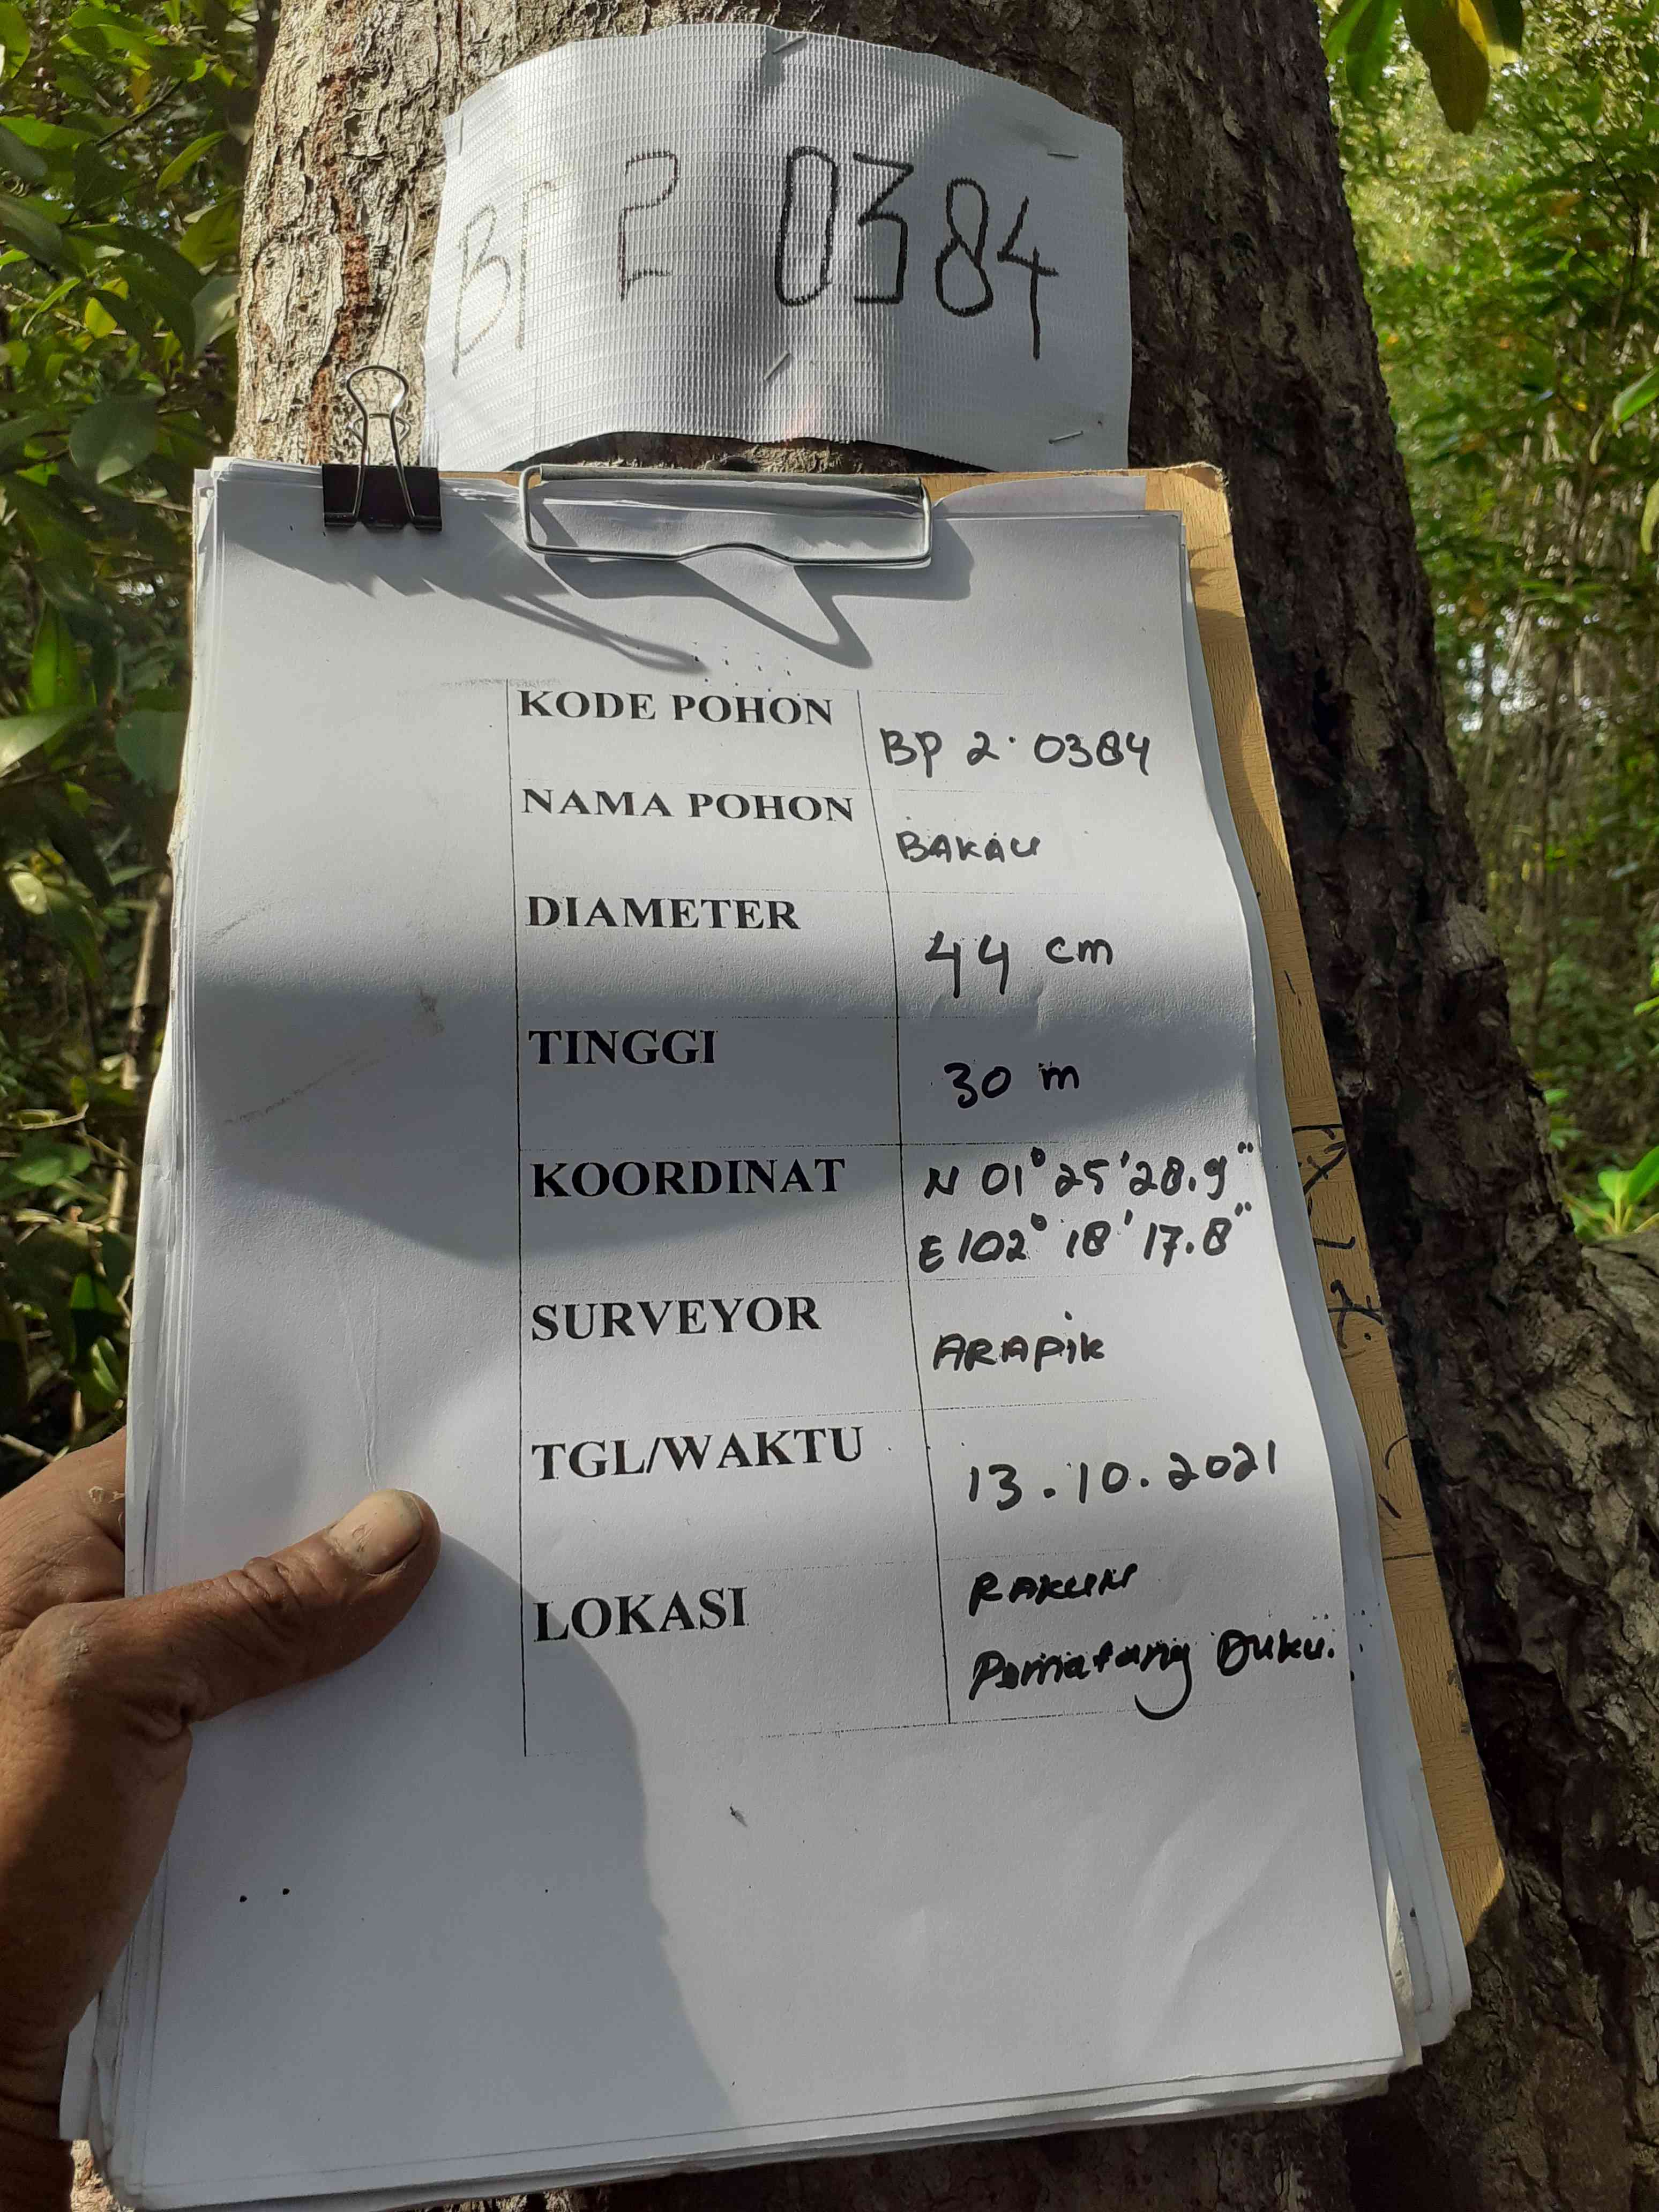 BP 2 0384
KODE POHON BP 2. 0384
NAMA POHON BAKAU
DIAMETER 44 cm
TINGGI 30 m
KOORDINAT N 01° 25' 28.9"
E 102° 18' 17.8"
SURVEYOR ARAPIK
TGL/WAKTU 13.10.2021
LOKASI RAKUN
Pematang Duku.